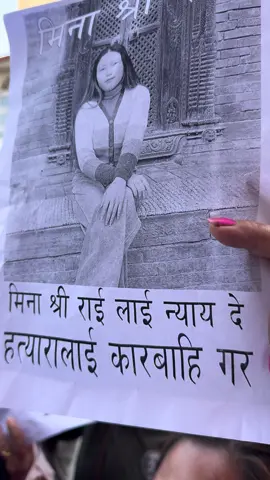 मिना श्री
मिना श्री राई लाई न्याय दे
हत्यारालाई कारबाहि गर